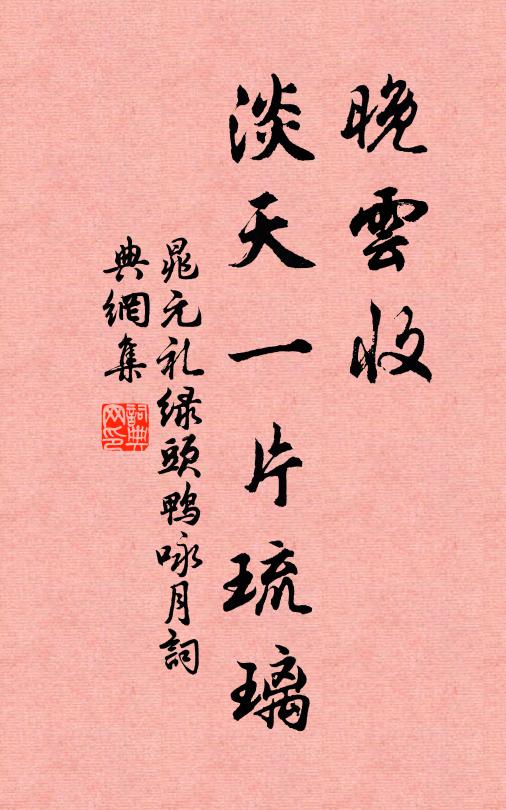 晚雲收
淡天一片琉璃
晁元礼緑頭鴨咏月詞
典網集
詞典网印